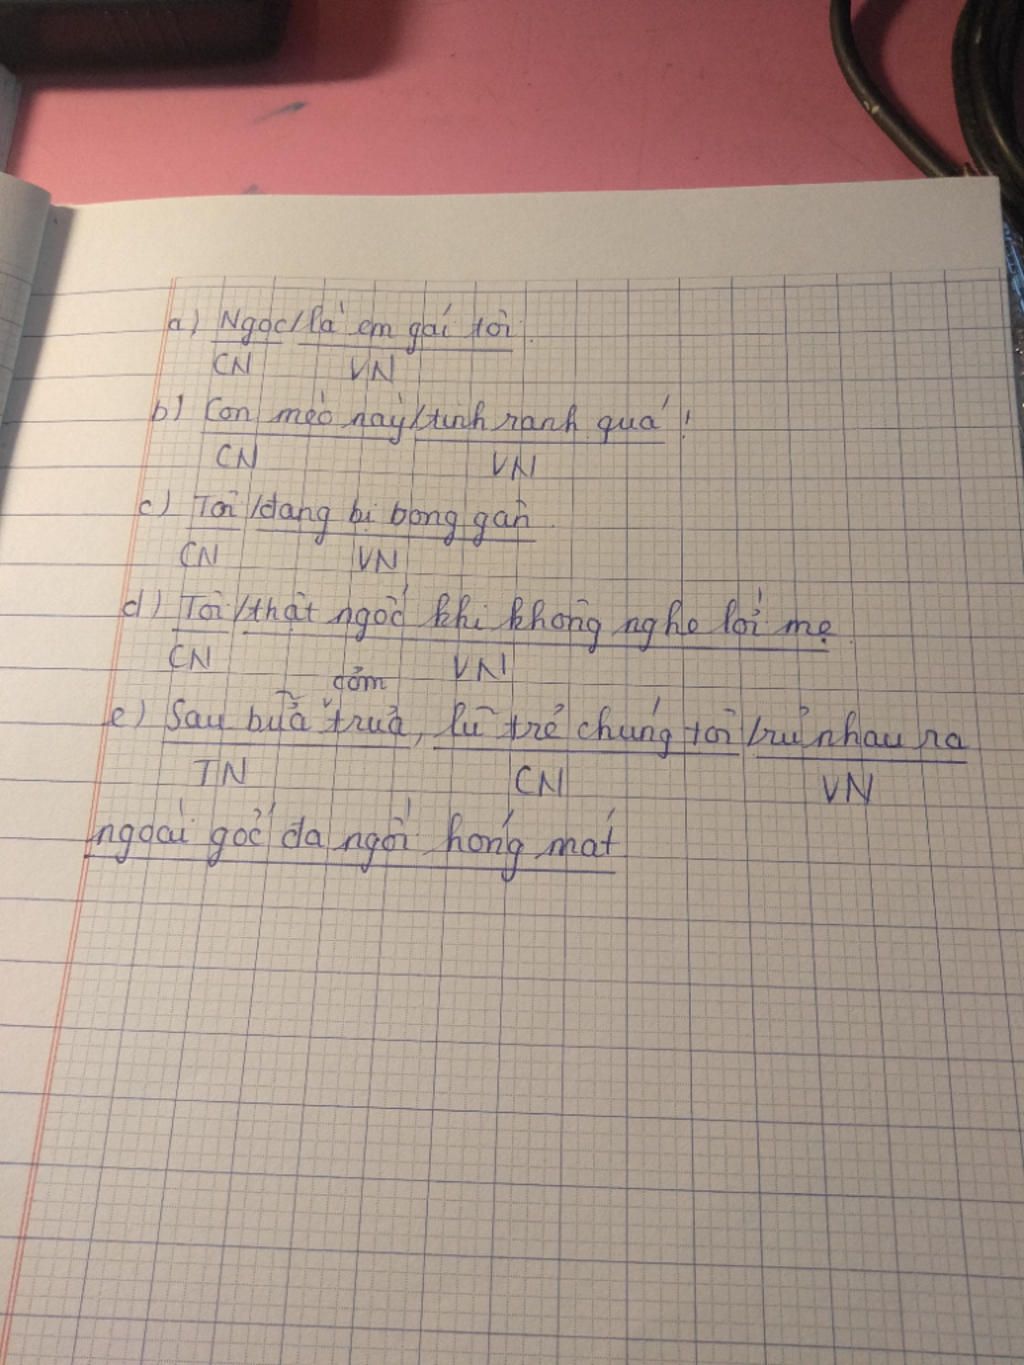 a) Ngọc/là em gái tôi.
CN VN
b) Con mèo này/tinh ranh quá!
CN VN
c) Tôi/đang bị bong gân.
CN VN
d) Tôi/thật ngốc khi không nghe lời mẹ.
CN VN
cơm
e) Sau bữa ˅ trưa, lũ trẻ chúng tôi/rủ nhau ra
TN CN VN
ngoài gốc đa ngồi hóng mát